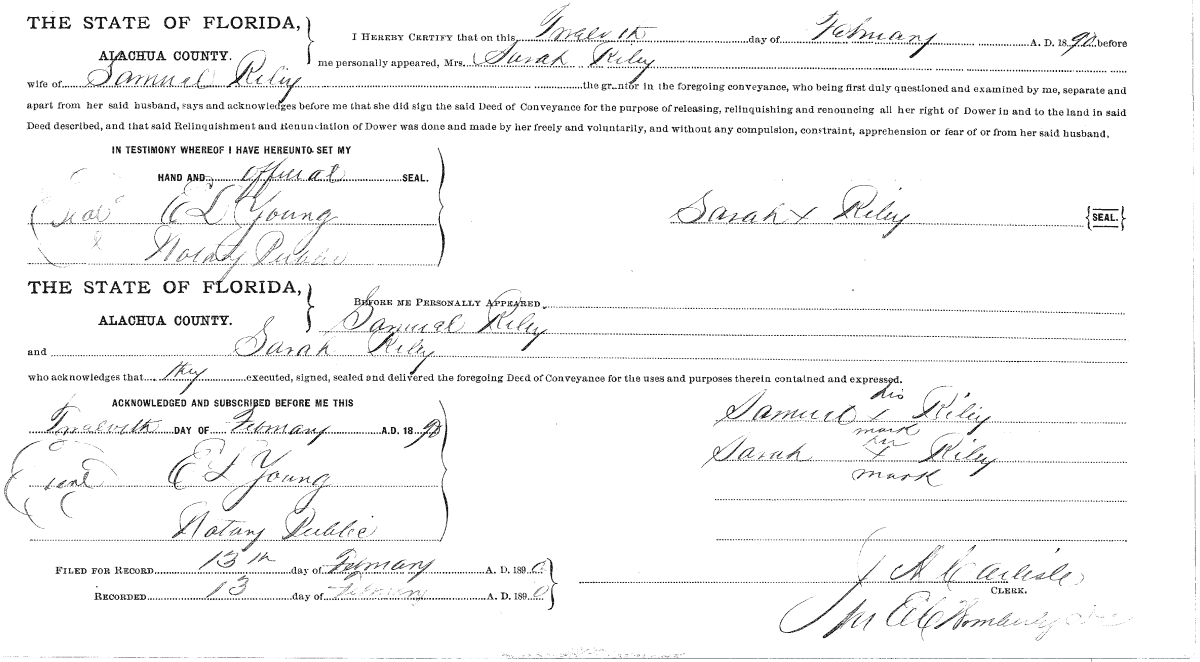 THE STATE OF FLORIDA,
ALACHUA COUNTY.
I HEREBY CERTIFY that on this Twelvth day of February A. D. 1890 before
me personally appeared, Mrs. Sarah Riley
wife of Samuel Riley the gr ntor in the foregoing conveyance, who being first duly questioned and examined by me, separate and
apart from her said husband, says and acknowledges before me that she did sign the said Deed of Conveyance for the purpose of releasing, relinquishing and renouncing all her right of Dower in and to the land in said
Deed described, and that said Relinquishment and Renunciation of Dower was done and made by her freely and voluntarily, and without any compulsion, constraint, apprehension or fear of or from her said husband.
IN TESTIMONY WHEREOF I HAVE HEREUNTO SET MY
HAND AND official SEAL.
seal E L Young
Sarah x Riley {SEAL.}
Notary Public
THE STATE OF FLORIDA,
ALACHUA COUNTY.
BEFORE ME PERSONALLY APPEARED
Samuel Riley
and Sarah Riley
who acknowledges that they executed, signed, sealed and delivered the foregoing Deed of Conveyance for the uses and purposes therein contained and expressed.
ACKNOWLEDGED AND SUBSCRIBED BEFORE ME THIS
Twelvth DAY OF February A.D. 1890
his
Samuel x Riley
mark
her
Sarah x Riley
mark
seal E L Young
Notary Public
FILED FOR RECORD 13th day of February A. D. 1890
RECORDED 13 day of February A. D. 1890
J A Carlisle
CLERK.
per